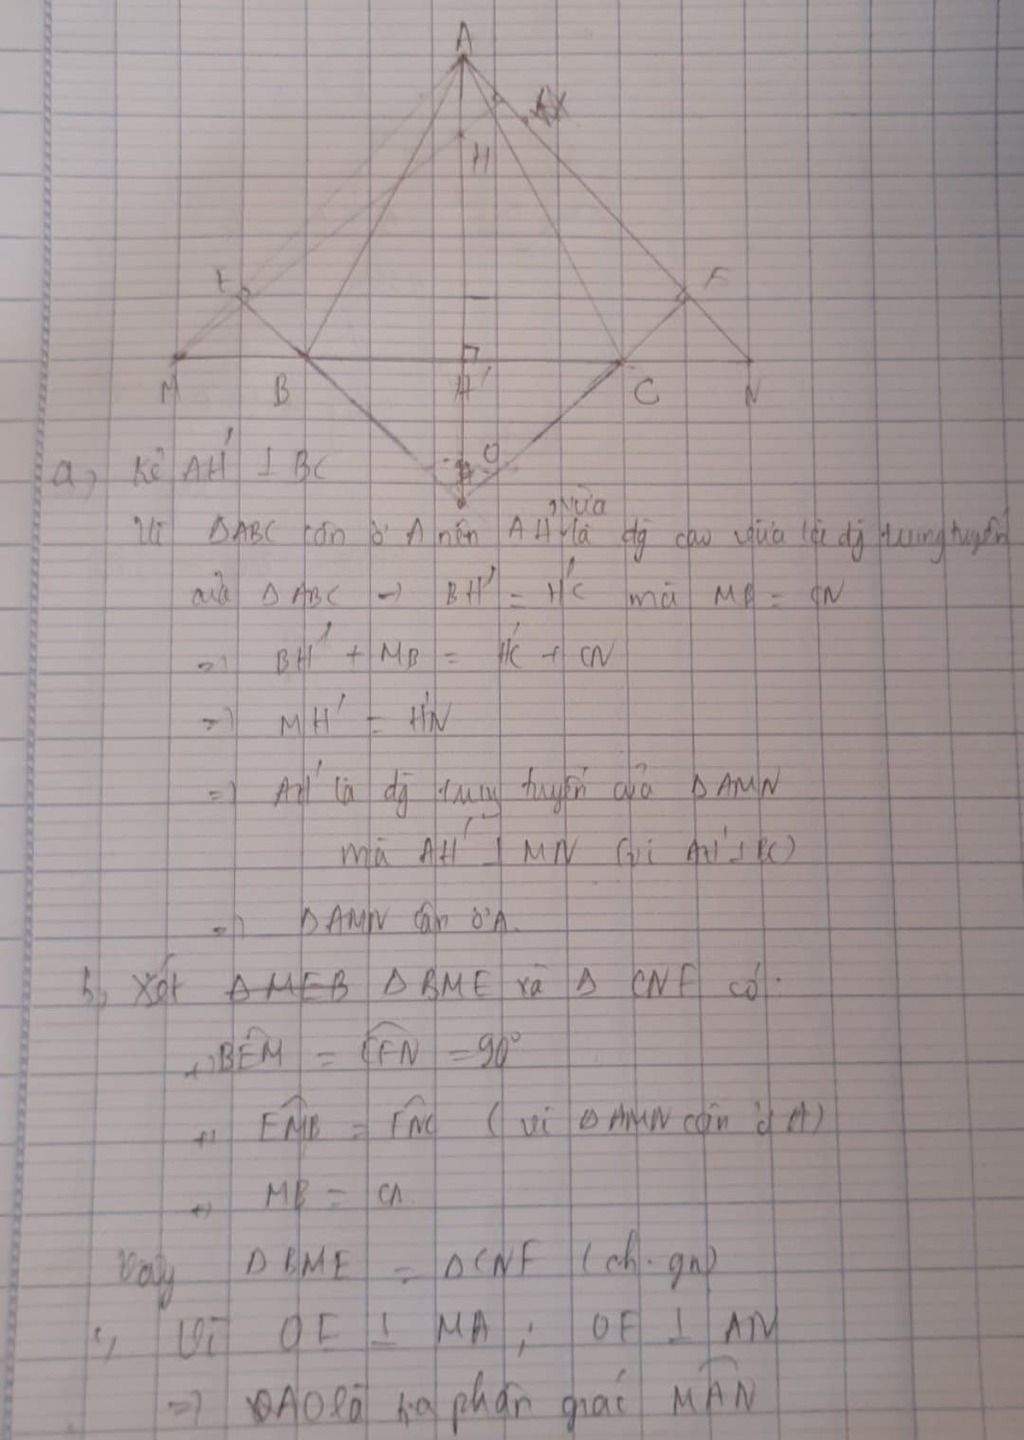 A
H
E
F
M
B
H'
C
N
O
a, Kẻ AH' ⊥ BC
Vì ΔABC cân ở A nên AH' vừa là đg cao vừa là đg trung tuyến
của ΔABC => BH' = H'C mà MB = CN
=> BH' + MB = H'C + CN
=> MH' = H'N
=> AH' là đg trung tuyến của ΔAMN
mà AH' ⊥ MN (vì AH' ⊥ BC)
=> ΔAMN cân ở A.
b, Xét ΔMEB ΔBME và Δ CNF có:
+, BÊM = CFN = 90°
+, EMB = FNC (vì ΔAMN cân ở A)
+, MB = CN
Vậy ΔBME = ΔCNF (ch-gn)
c, Vì OE ⊥ MA ; OF ⊥ AN
=> AO là tia phân giác MAN